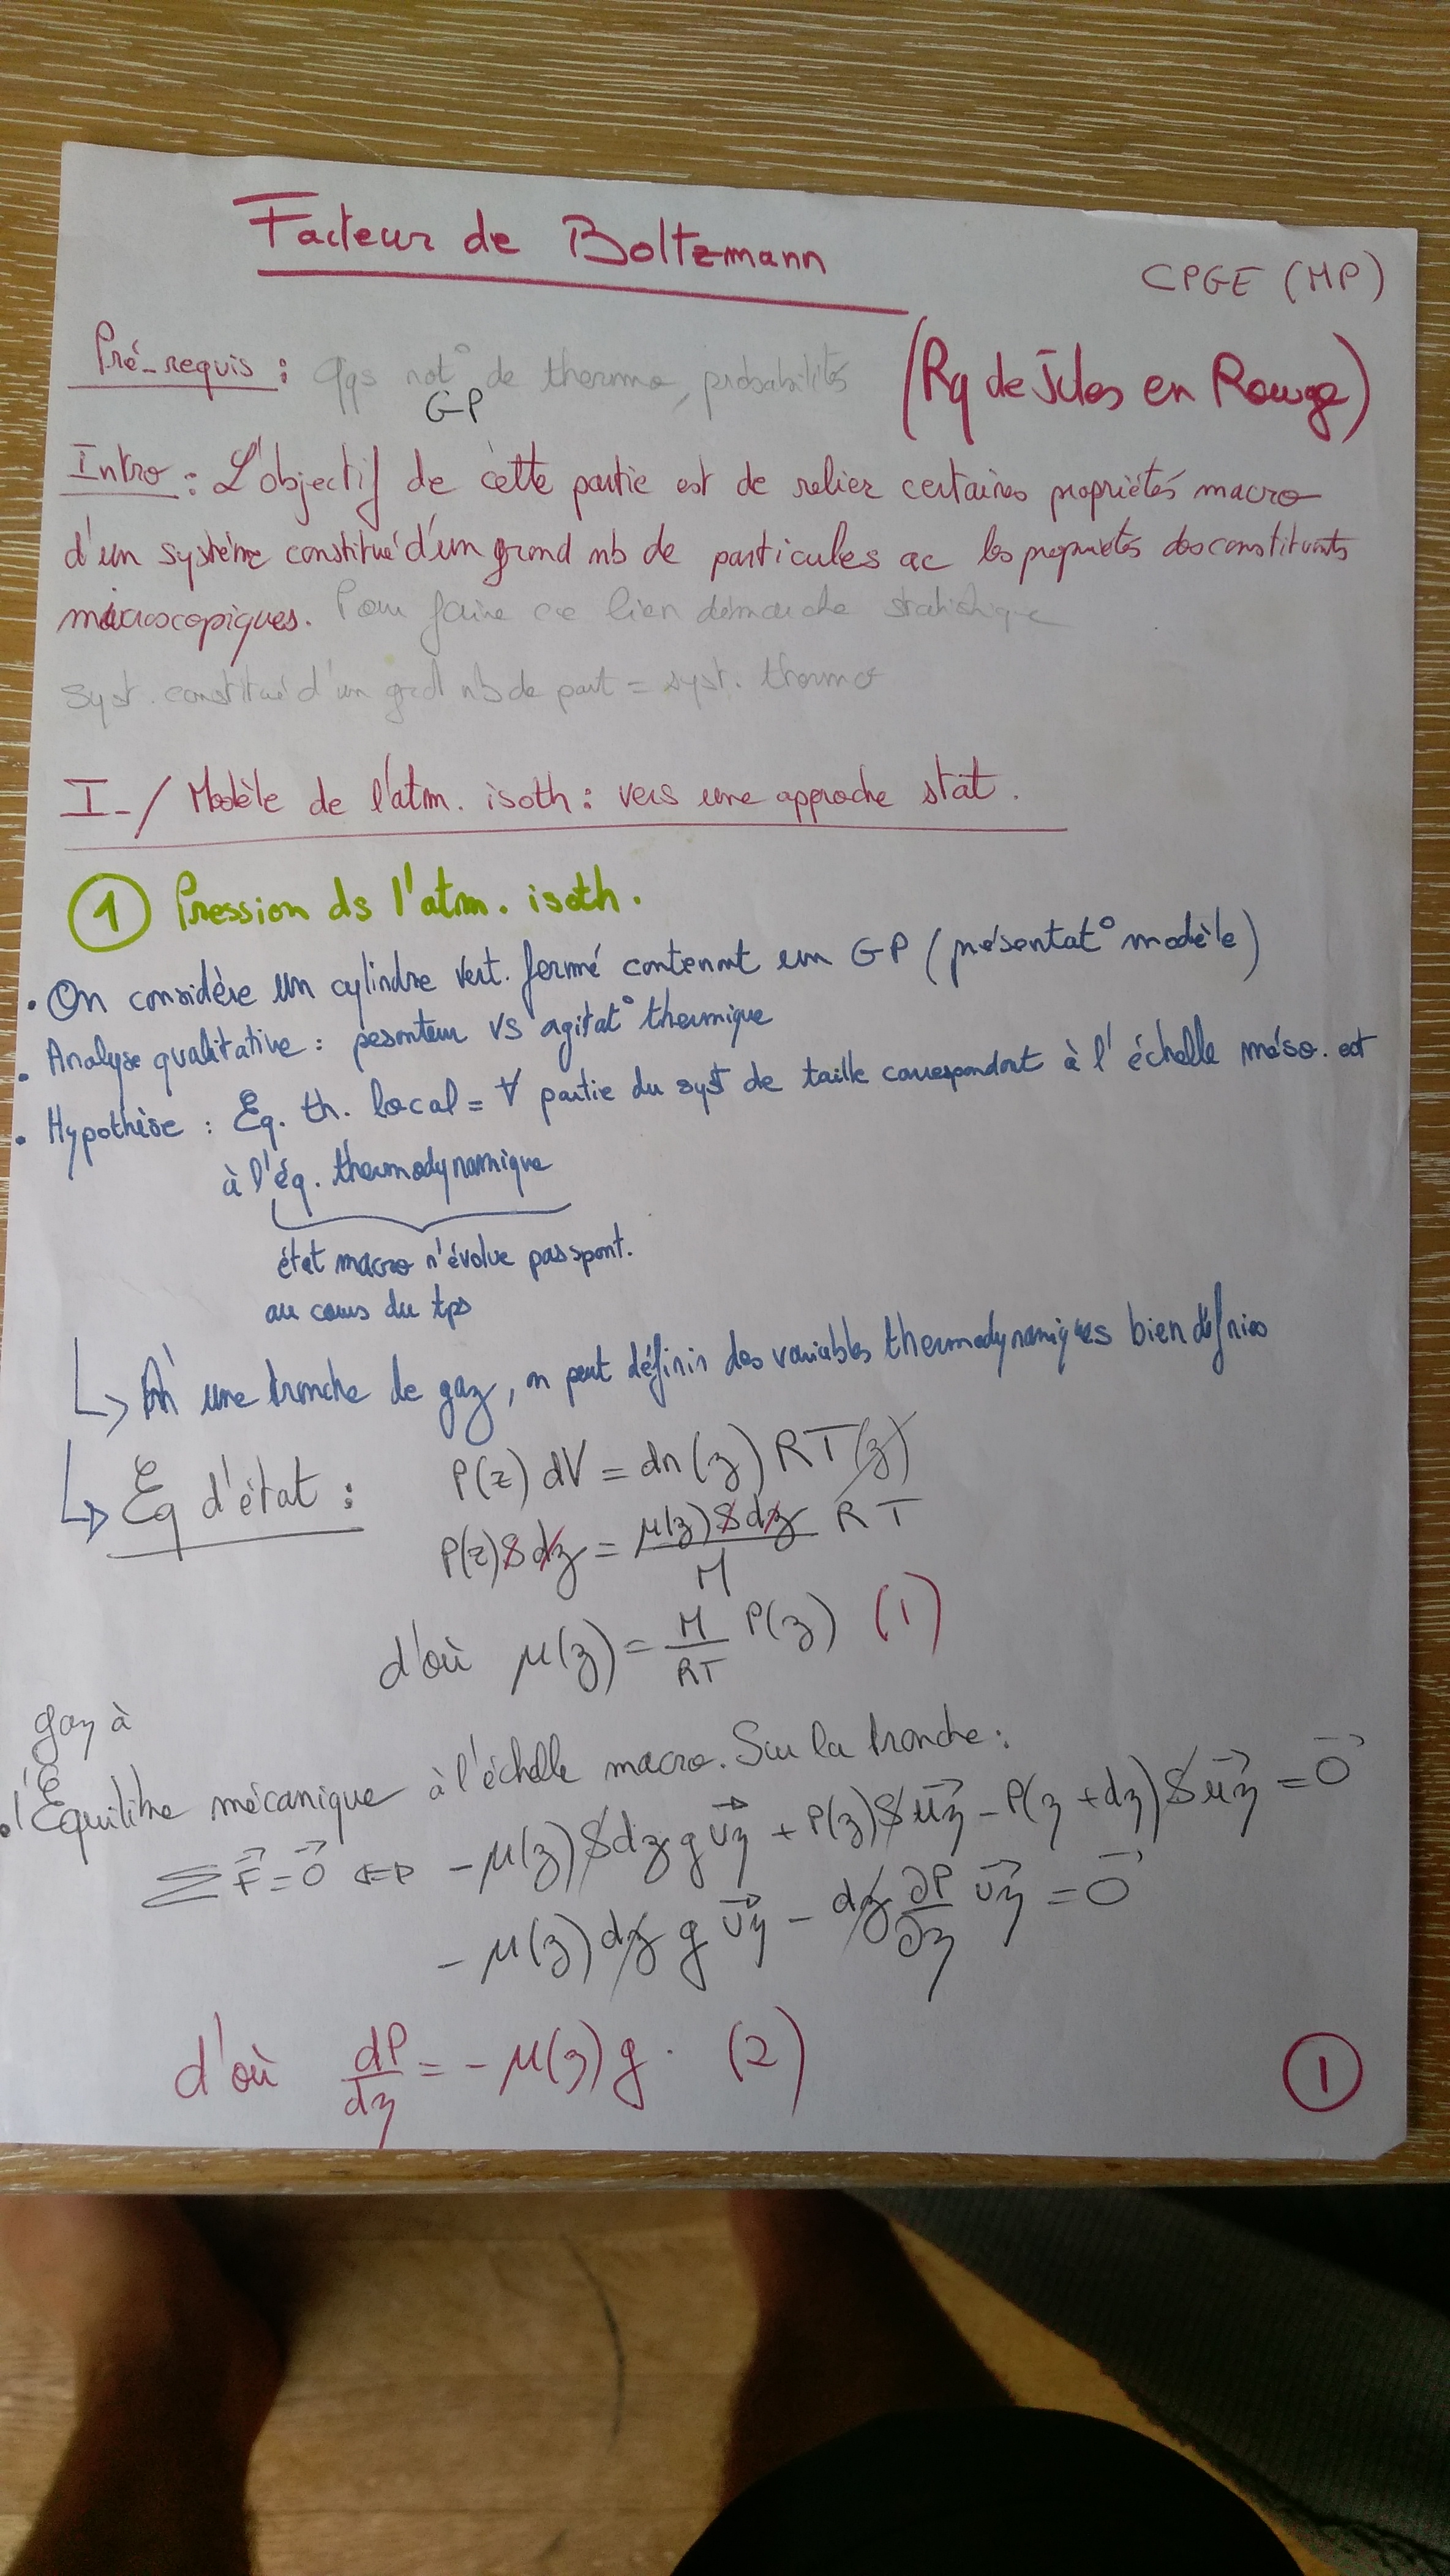 Facteur de Boltzmann
CPGE (MP)
Pré-requis : qqs not° de thermo, probabilités
GP
(Rq de Jules en Rouge)
Intro : L'objectif de cette partie est de relier certaines propriétés macro
d'un système constitué d'un grand nb de particules ac les propriétés des constituants
microscopiques. Pour faire ce lien démarche statistique
Syst. constitué d'un grd nb de part = syst. thermo
I-/ Modèle de l'atm. isoth : vers une approche stat.
1 Pression ds l'atm. isoth.
• On considère un cylindre vert. fermé contenant un GP (présentat° modèle)
• Analyse qualitative : pesanteur VS agitat° thermique
• Hypothèse : Eq. th. local = ∀ partie du syst de taille correspondant à l'échelle méso. est
à l'éq. thermodynamique
état macro n'évolue pas spont.
au cours du tps
↳ À une tranche de gaz, on peut définir des variables thermodynamiques bien définies
↳ Eq d'état : P(z) dV = dn(z) RT(z)
P(z) S dz = μ(z) S dz / M RT
d'où μ(z) = M/RT P(z) (1)
gaz à
• l'Equilibre mécanique à l'échelle macro. Sur la tranche :
∑F⃗ = 0⃗ ⇔ -μ(z) S dz g u⃗z + P(z) S u⃗z - P(z + dz) S u⃗z = 0⃗
-μ(z) dz g u⃗z - dz ∂P/∂z u⃗z = 0⃗
d'où dP/dz = -μ(z) g. (2)
1